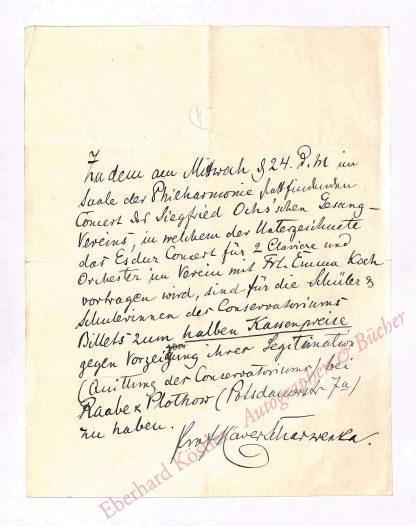 Zu dem am Mittwoch d 24. d. M im
Saale der Philharmonie stattfindenden
Concert des Siegfried Ochs'schen Gesang-
Vereins, in welchem der Unterzeichnete
das Esdur Concert für 2 Claviere und
Orchester im Verein mit Frl. Emma Koch
vortragen wird, sind für die Schüler &
Schülerinnen des Conservatoriums
Billets zum halben Kassenpreise
gegen Vorzeigung ihrer Legitimation
(Quittung des Conservatoriums) bei
Raabe & Plothow (Potsdamerstr 7a)
zu haben.
Prof Xaver Scharwenka.
Eberhard Köstler Autographen & Bücher